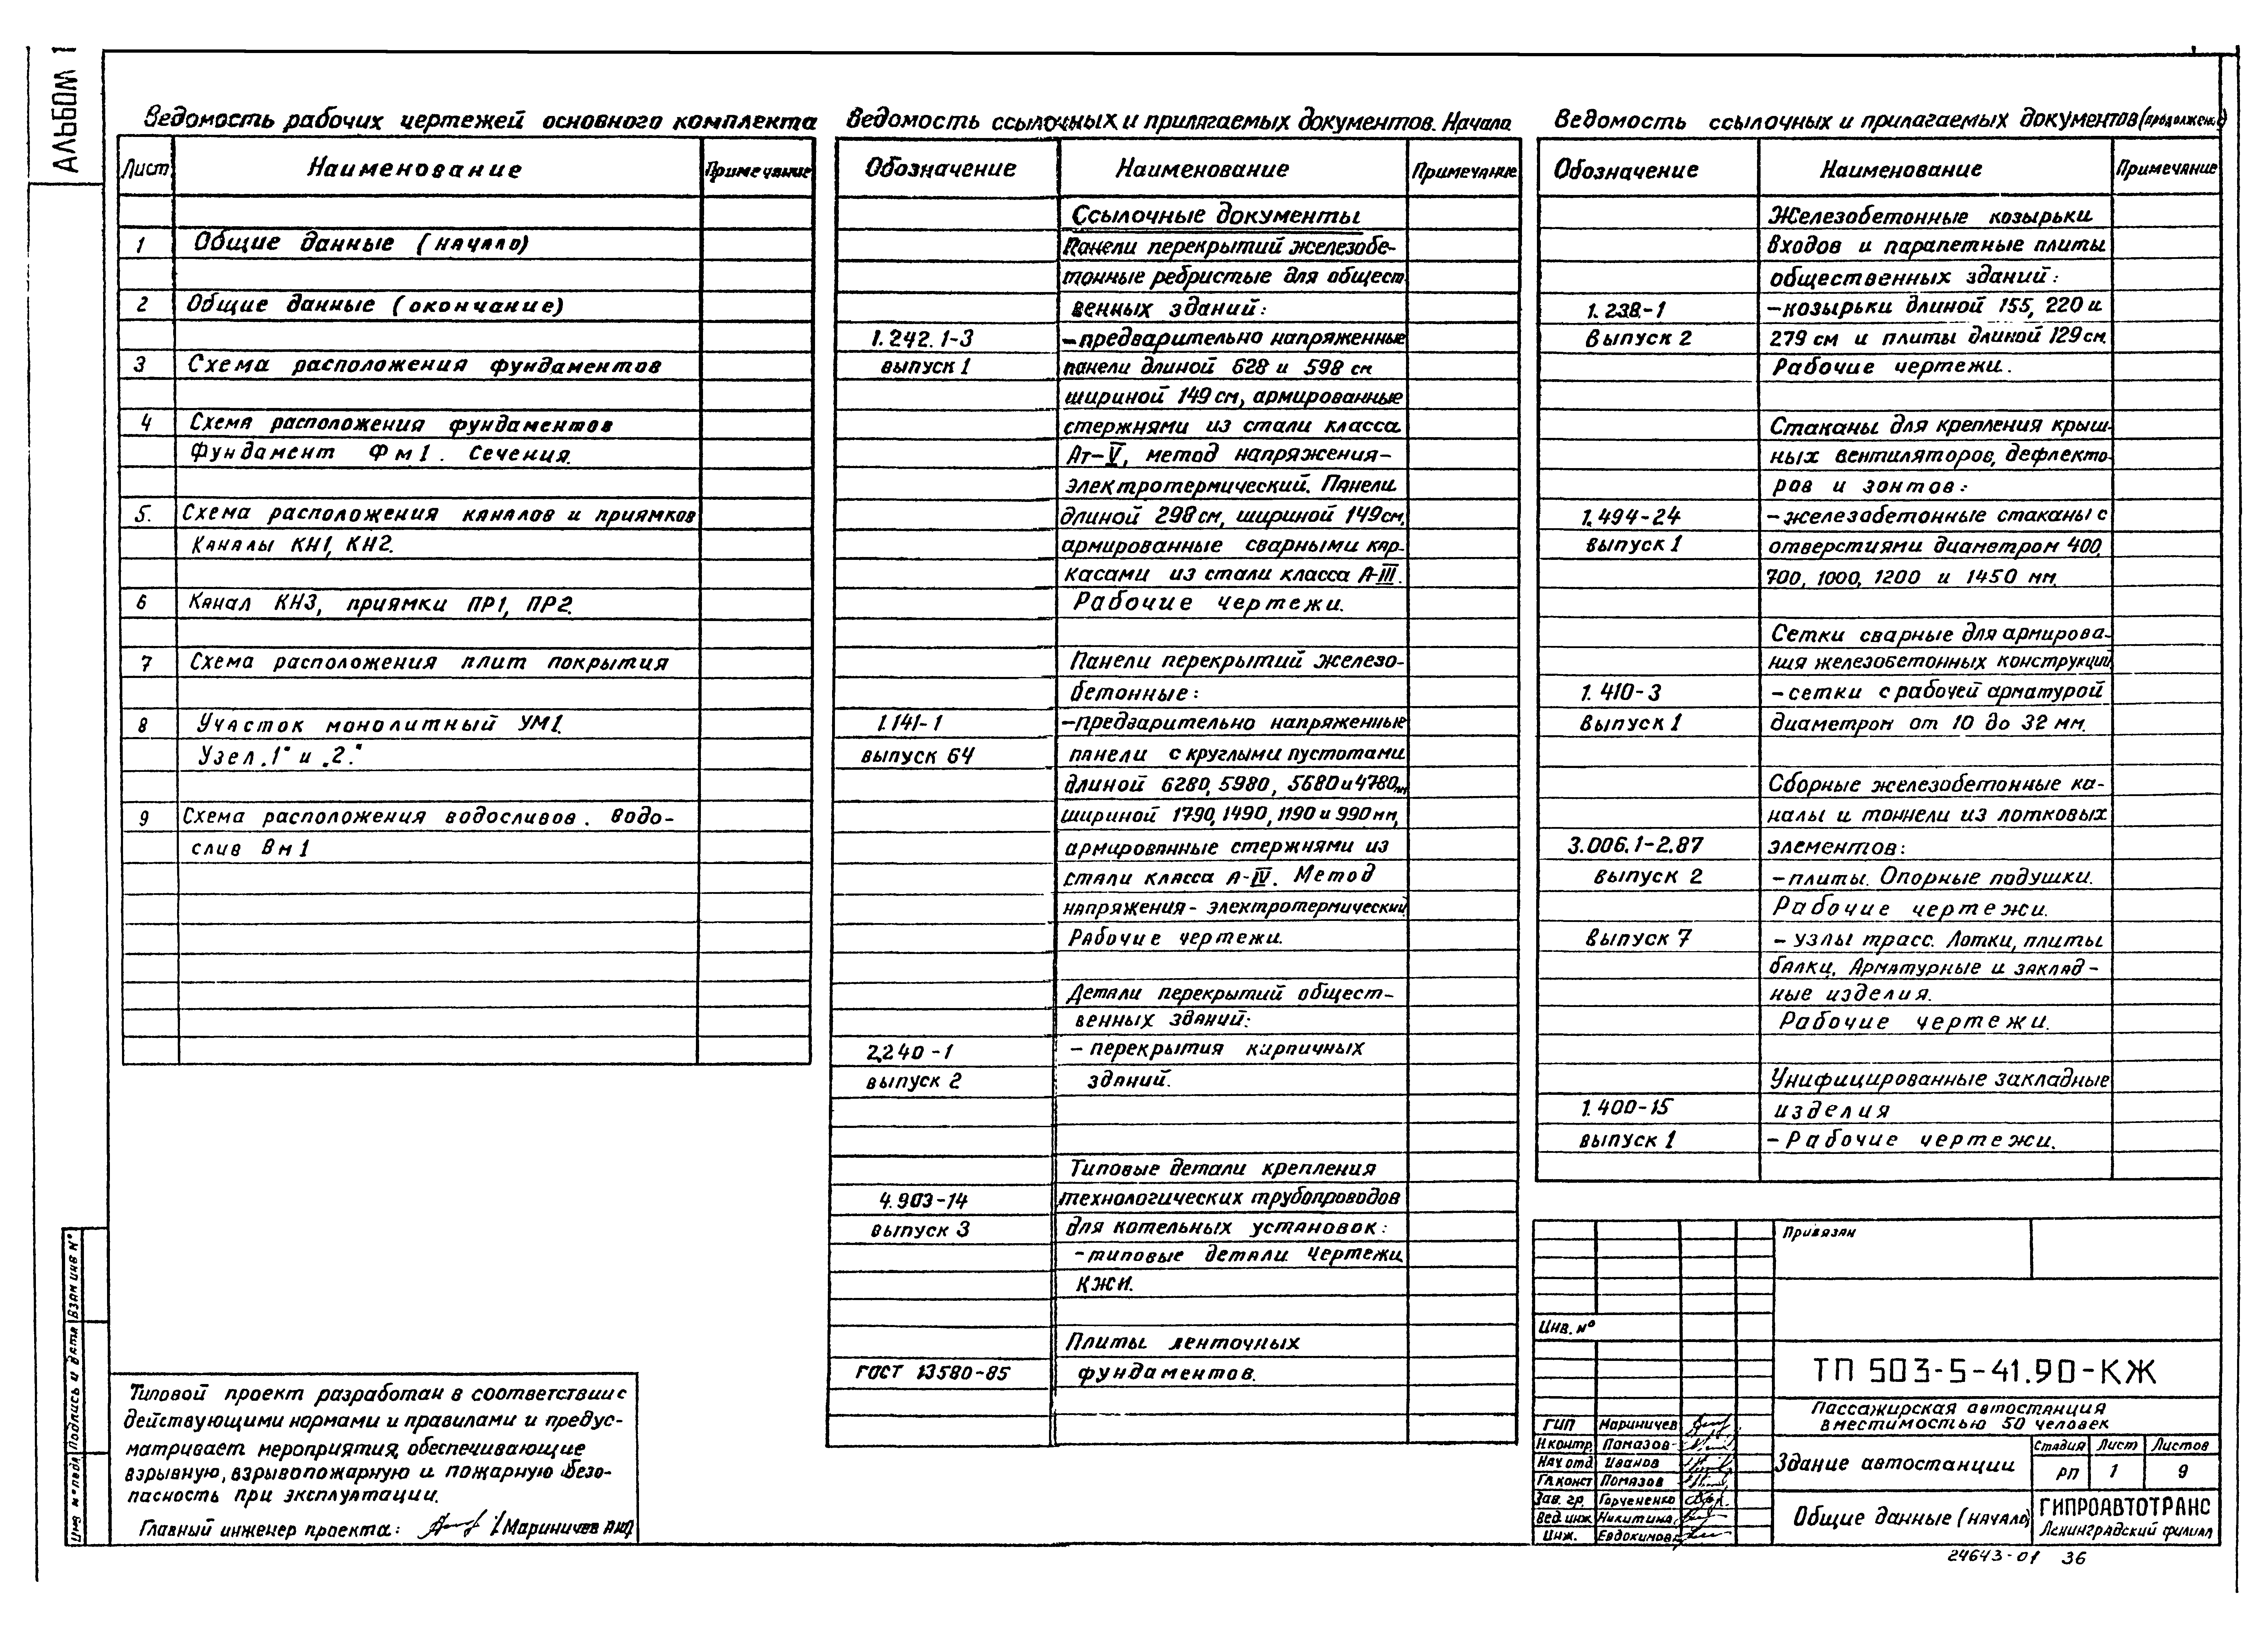 АЛЬБОМ 1
Ведомость рабочих чертежей основного комплекта
Лист Наименование Примечание
1 Общие данные (начало)
2 Общие данные (окончание)
3 Схема расположения фундаментов
4 Схема расположения фундаментов
Фундамент Фм1. Сечения.
5. Схема расположения каналов и приямков
Каналы КН1, КН2.
6 Канал КН3, приямки ПР1, ПР2.
7 Схема расположения плит покрытия
8 Участок монолитный УМ1.
Узел „1" и „2".
9 Схема расположения водосливов. Водо-
слив Вм1
Ведомость ссылочных и прилагаемых документов. Начало
Обозначение Наименование Примечание
Ссылочные документы
Панели перекрытий железобе-
тонные ребристые для общест
венных зданий:
1.242.1-3 -предварительно напряженные
выпуск 1 панели длиной 628 и 598 см
шириной 149 см, армированные
стержнями из стали класса
Ат-V, метод напряжения-
электротермический. Панели
длиной 298 см, шириной 149 см,
армированные сварными кар-
касами из стали класса А-III.
Рабочие чертежи.
Панели перекрытий железо-
бетонные:
1.141-1 -предварительно напряженные
выпуск 64 панели с круглыми пустотами
длиной 6280, 5980, 5680 и 4780 мм
шириной 1790, 1490, 1190 и 990 мм,
армированные стержнями из
стали класса А-IV. Метод
напряжения- электротермический
Рабочие чертежи.
Детали перекрытий общест-
венных зданий:
2.240-1 - перекрытия кирпичных
выпуск 2 зданий.
Типовые детали крепления
4.903-14 технологических трубопроводов
выпуск 3 для котельных установок:
-типовые детали. Чертежи
КЖИ.
Плиты ленточных
ГОСТ 13580-85 фундаментов.
Ведомость ссылочных и прилагаемых документов (продолжение)
Обозначение Наименование Примечание
Железобетонные козырьки
входов и парапетные плиты
общественных зданий:
1.238-1 -козырьки длиной 155, 220 и
Выпуск 2 279 см и плиты длиной 129 см.
Рабочие чертежи.
Стаканы для крепления крыш-
ных вентиляторов, дефлекто-
ров и зонтов:
1.494-24 -железобетонные стаканы с
выпуск 1 отверстиями диаметром 400,
700, 1000, 1200 и 1450 мм.
Сетки сварные для армирова-
ния железобетонных конструкций
1.410-3 -сетки с рабочей арматурой
выпуск 1 диаметром от 10 до 32 мм.
Сборные железобетонные ка-
налы и тоннели из лотковых
3.006.1-2.87 элементов:
выпуск 2 -плиты. Опорные подушки.
Рабочие чертежи.
Выпуск 7 - узлы трасс. Лотки, плиты
балки. Арматурные и заклад-
ные изделия.
Рабочие чертежи.
Унифицированные закладные
1.400-15 изделия
выпуск 1 -Рабочие чертежи.
Типовой проект разработан в соответствии с
действующими нормами и правилами и предус-
матривает мероприятия, обеспечивающие
взрывную, взрывопожарную и пожарную безо-
пасность при эксплуатации.
Главный инженер проекта: /Мариничев
Инв № подл Подпись и дата Взам инв №
Привязан
Инв. №
ТП 503-5-41.90-КЖ
Пассажирская автостанция
вместимостью 50 человек
ГИП Мариничев
Н контр. Помазов
Нач отд Иванов
Гл конст Помазов
Зав. гр. Горчененко
Вед. инж Никитина
Инж. Евдокимов
Здание автостанции
Стадия Лист Листов
РП 1 9
Общие данные (начало)
ГИПРОАВТОТРАНС
Ленинградский филиал
24643-01 36